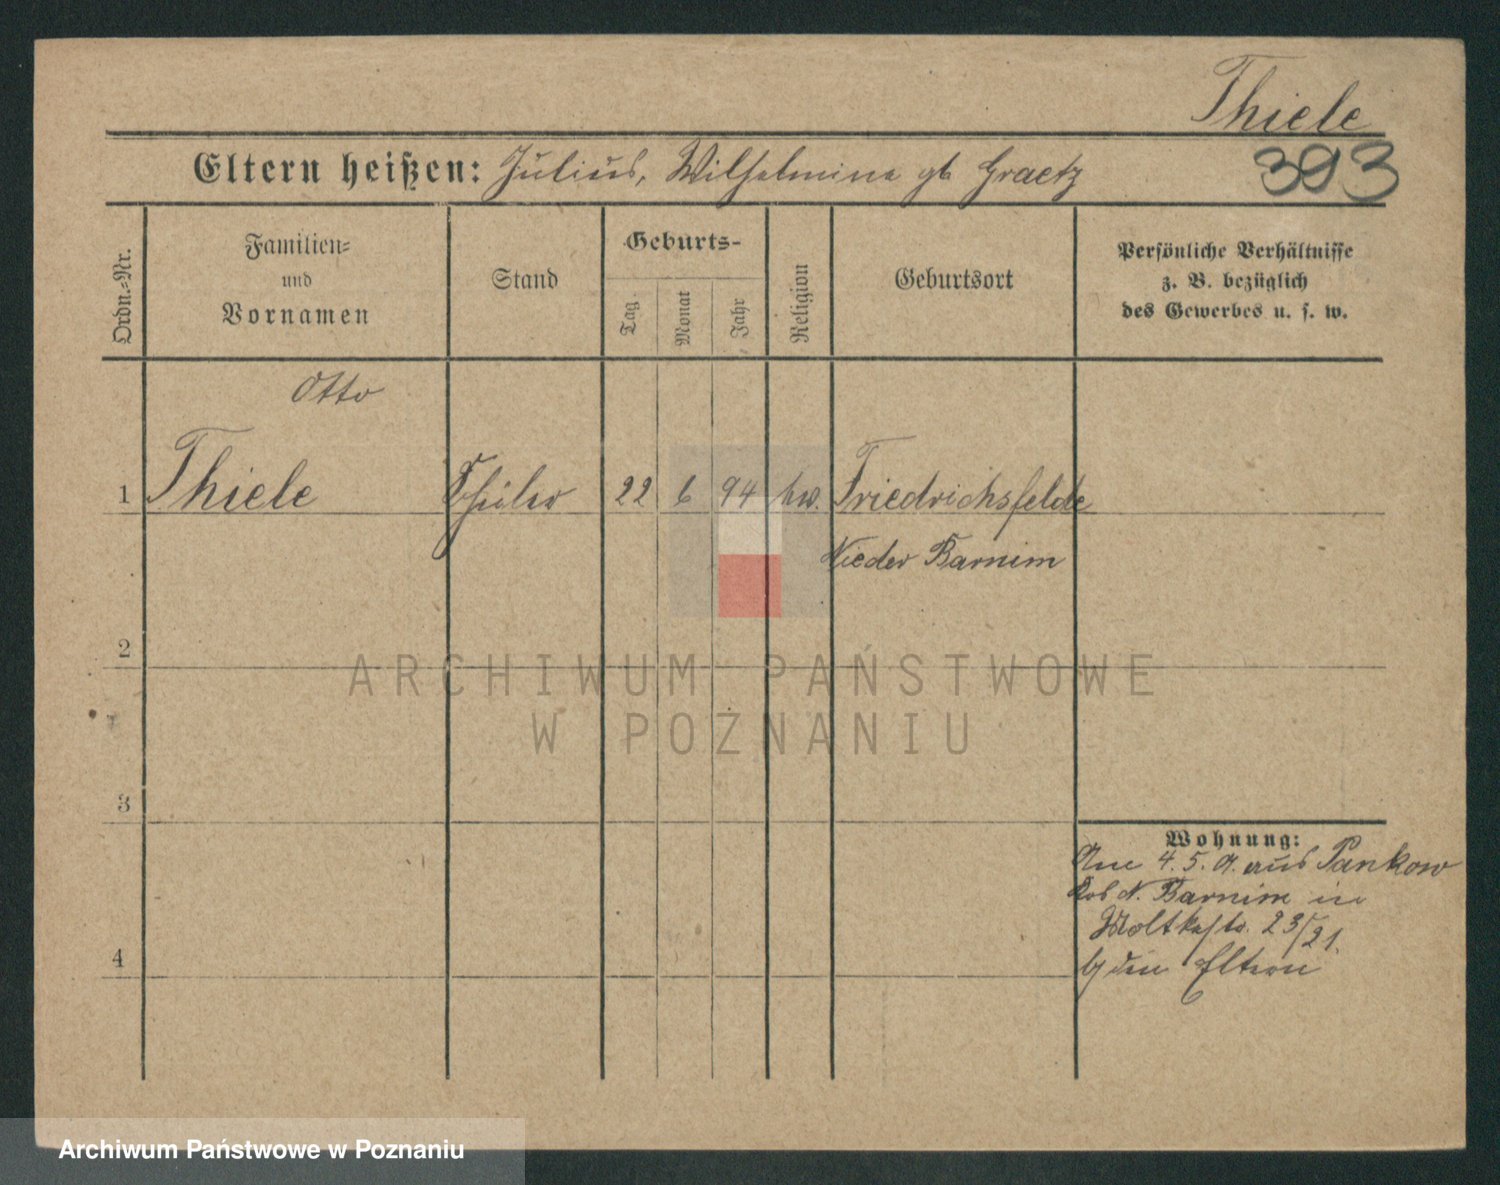 Thiele
393
Eltern heißen: Julius, Wilhelmine gb Graetz
Ordn.-Nr.
Familien-
und
Vornamen
Stand
Geburts-
Tag.
Monat
Jahr
Religion
Geburtsort
Persönliche Verhältnisse
z. B. bezüglich
des Gewerbes u. s. w.
Otto
1 Thiele Schüler 22 6 94 Friedrichsfelde
Nieder Barnim
2
3
4
Wohnung:
4. 5. 9. aus Pankow
N. Barnim in
Moltkestr. 23/21.
den Eltern
ARCHIWUM PAŃSTWOWE
W POZNANIU
Archiwum Państwowe w Poznaniu